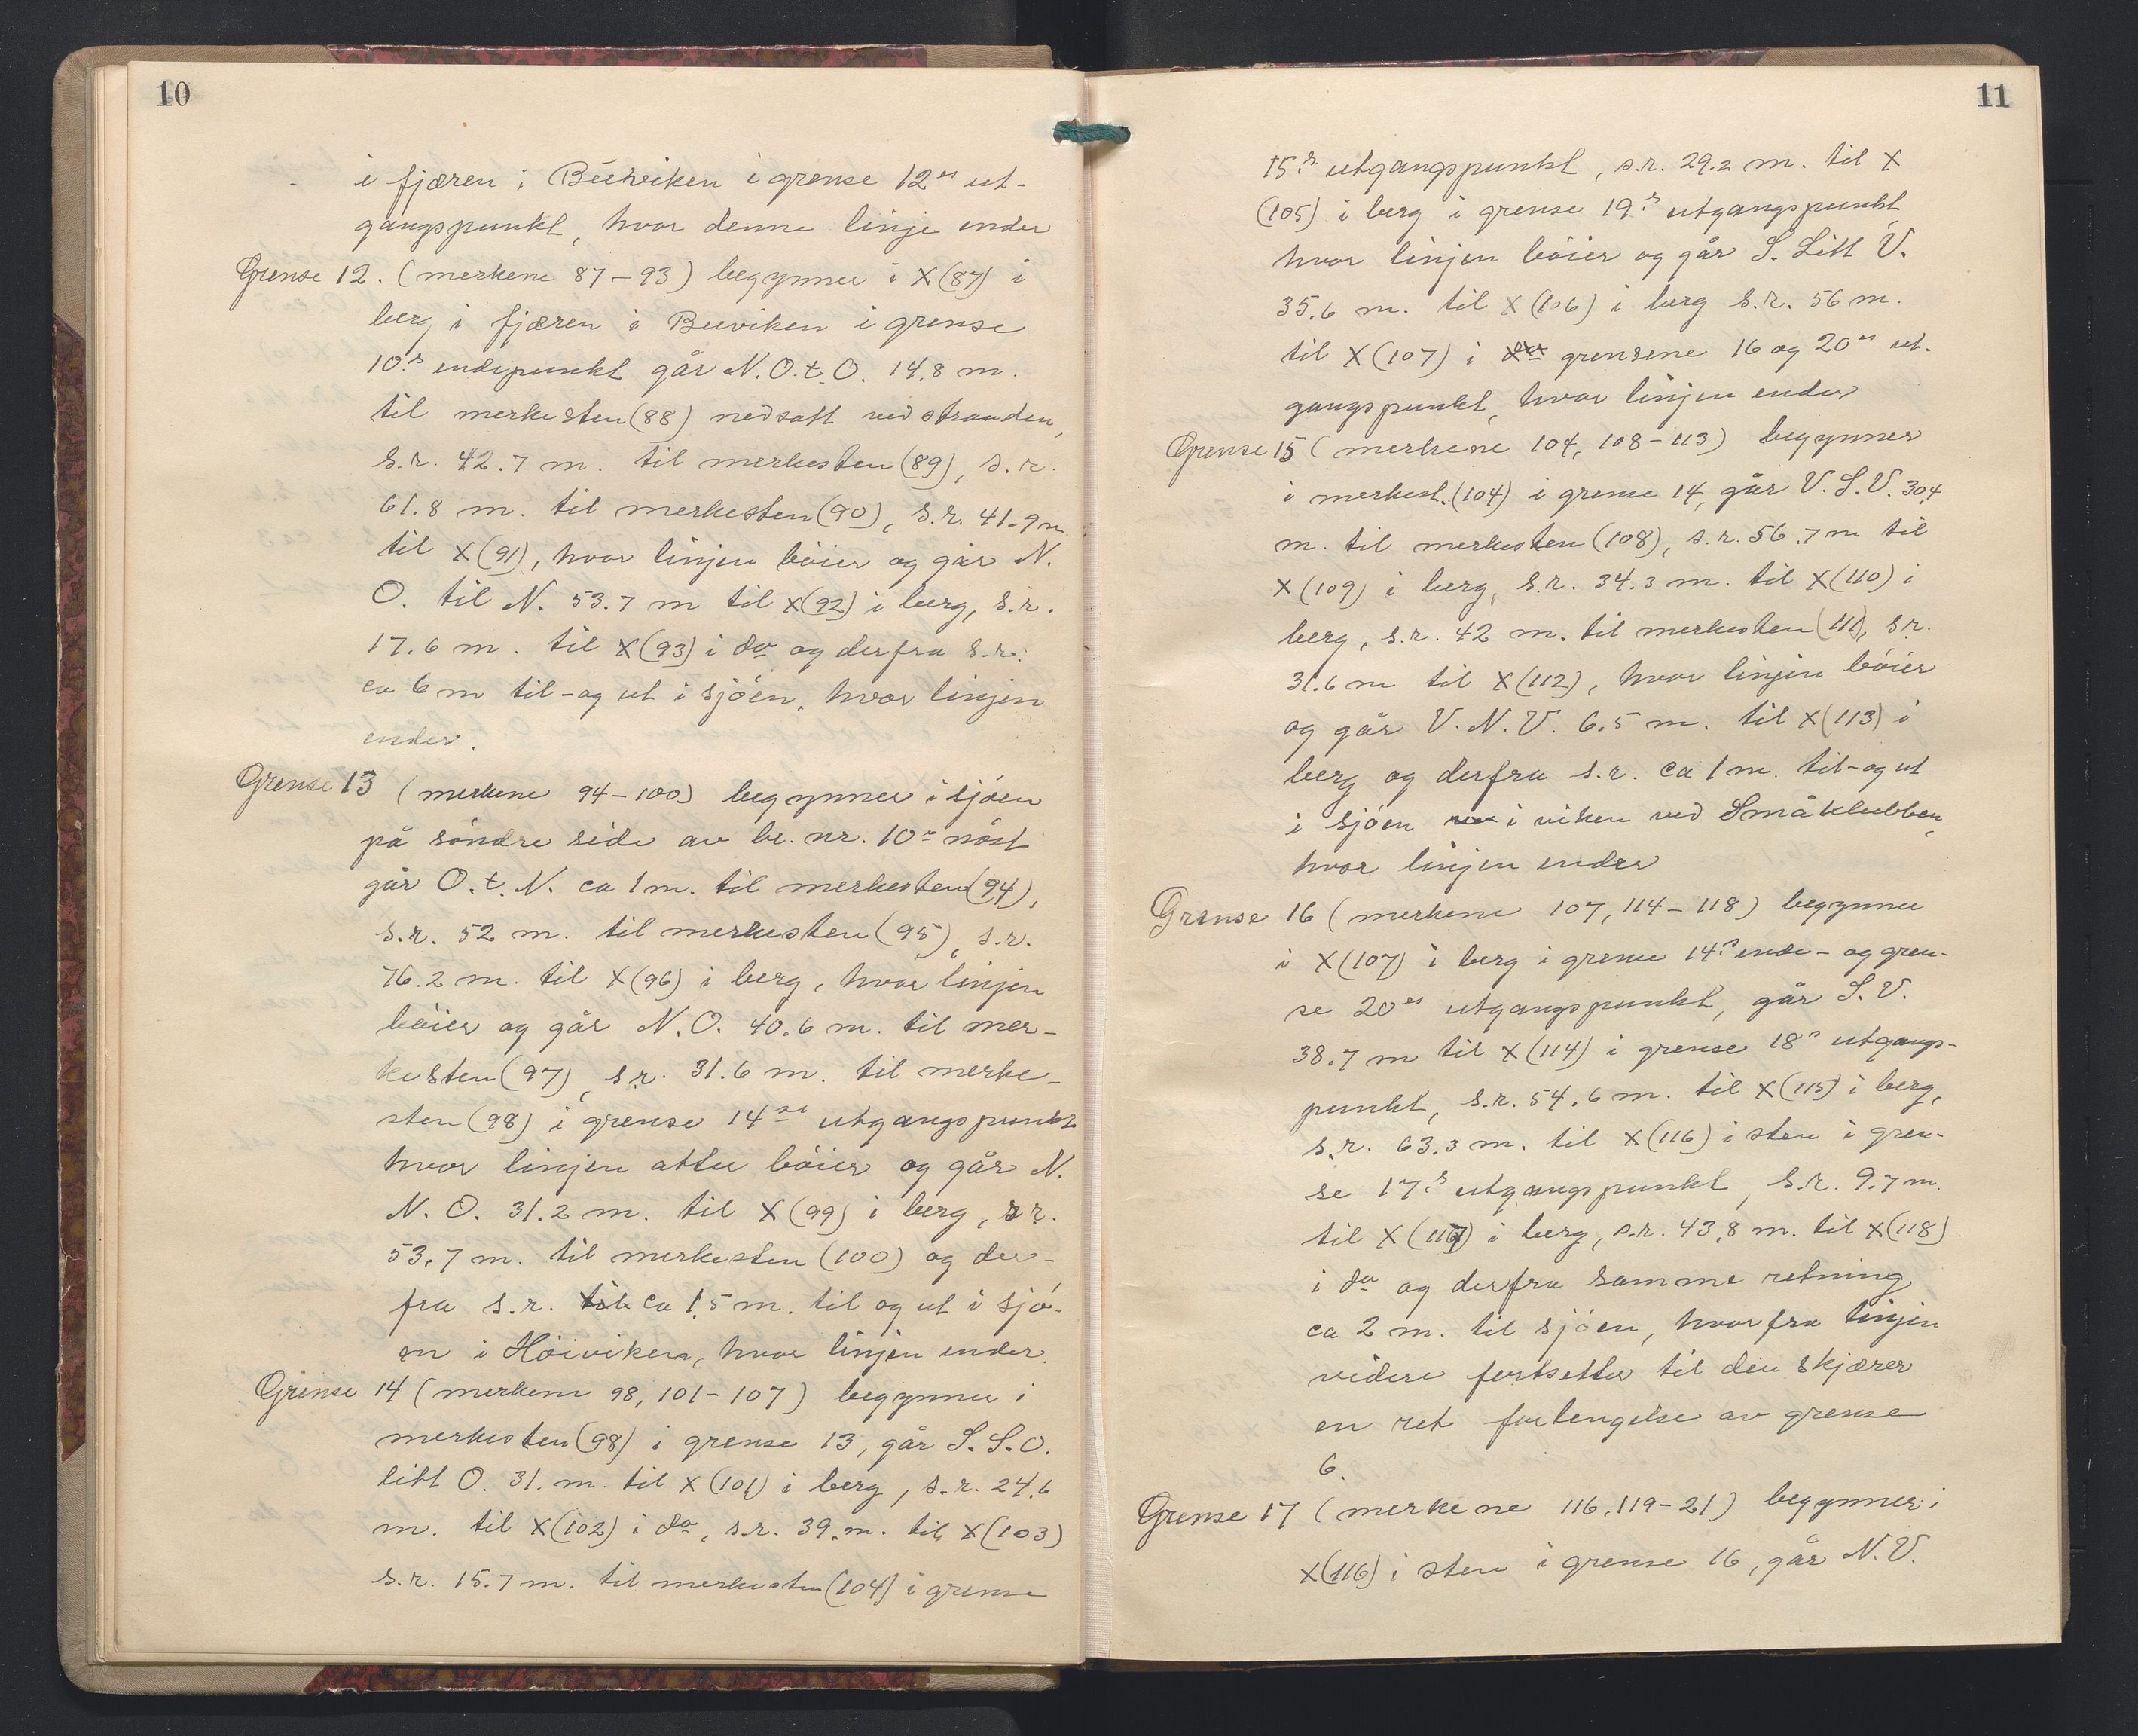 10
i fjæren i Buviken i grense 12es ut-
gangspunkt, hvor denne linje ender
Grense 12. (merkene 87-93) begynner i X(87) i
berg i fjæren i Buviken i grense
10s endepunkt går N.O.t.O. 14.8 m.
til merkesten (88) nedsatt ved stranden,
s.r. 42.7 m. til merkesten (89), s.r.
61.8 m. til merkesten (90), s.r. 41.9 m
til X(91), hvor linjen böier og går N.
O. til N. 53.7 m til X(92) i berg, s.r.
17.6 m. til X(93) i do og derfra s.r.
ca 6 m til-og ut i sjöen, hvor linjen
ender.
Grense 13 (merkene 94-100) begynner i sjöen
på söndre side av br. nr. 10s nöst
går O.t.N. ca 1 m. til merkesten (94),
s.r. 52 m. til merkesten (95), s.r.
76.2 m. til X(96) i berg, hvor linjen
böier og går N.O. 40.6 m. til mer-
kesten (97), s.r. 31.6 m. til merke-
sten (98) i grense 14s utgangspunkt
hvor linjen atter böier og går N.
N.O. 31.2 m. til X(99) i berg, s.r.
53.7 m. til merkesten (100) og der-
fra s.r. til ca 1.5 m. til og ut i sjö-
en i Höiviken, hvor linjen ender.
Grense 14 (merkene 98, 101-107) begynner i
merkesten (98) i grense 13, går S.S.O.
litt O. 31. m. til X(101) i berg, s.r. 24.6
m. til X(102) i do, s.r. 39. m. til X(103)
s.r. 15.7 m. til merkesten (104) i grense
11
15s utgangspunkt, s.r. 29.2 m. til X
(105) i berg i grense 19s utgangspunkt,
hvor linjen böier og går S. Litt V.
35.6 m. til X(106) i berg s.r. 56 m.
til X(107) i grensene 16 og 20es ut-
gangspunkt, hvor linjen ender
Grense 15 (merkene 104, 108-113) begynner
i merkest. (104) i grense 14, går V.S.V. 30.4
m. til merkesten (108), s.r. 56.7 m til
X(109) i berg, s.r. 34.3 m. til X(110) i
berg, s.r. 42 m. til merkesten (111), s.r.
31.6 m til X(112), hvor linjen böier
og går V.N.V. 6.5 m. til X(113) i
berg og derfra s.r. ca 1 m. til-og ut
i sjöen i viken ved Småklubben,
hvor linjen ender
Grense 16 (merkene 107, 114-118) begynner
i X(107) i berg i grense 14s ende- og gren-
se 20es utgangspunkt, går S.V.
38.7 m til X(114) i grense 18s utgangs-
punkt, s.r. 54.6 m. til X(115) i berg,
s.r. 63.3 m. til X(116) i sten i gren-
se 17s utgangspunkt, s.r. 9.7 m.
til X(117) i berg, s.r. 43.8 m. til X(118)
i do og derfra samme retning
ca 2 m. til sjöen, hvorfra linjen
videre fortsetter til den skjærer
en ret forlengelse av grense
6.
Grense 17 (merkene 116, 119-21) begynner i
X(116) i sten i grense 16, går N.V.